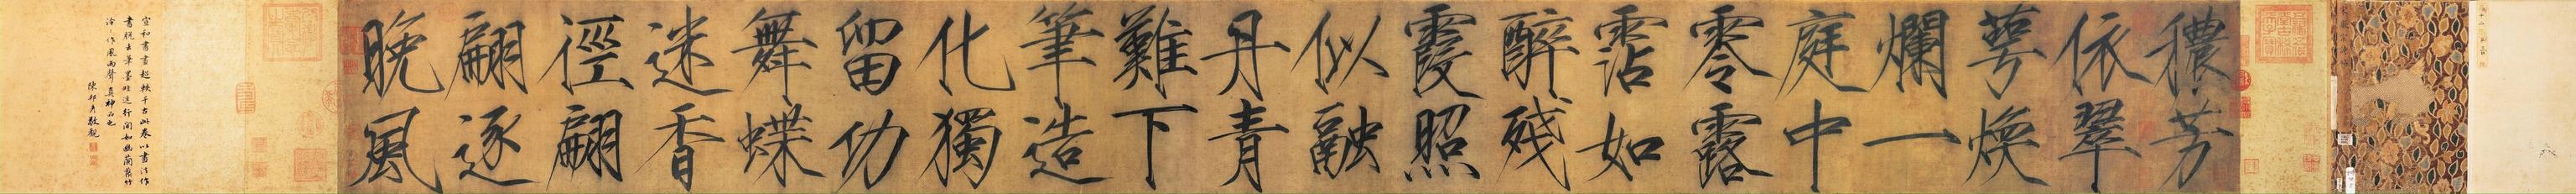 穠芳
依翠
萼煥
爛一
庭中
零露
霑如
醉殘
霞照
似融
丹青
難下
筆造
化獨
留功
舞蝶
迷香
徑翩
翩逐
晚風
宣和書畫超軼千古此卷以書法作
書脫去筆墨畦逕行間如幽蘭叢竹
泠泠作風雨聲真神品也
陳邦彥敬觀